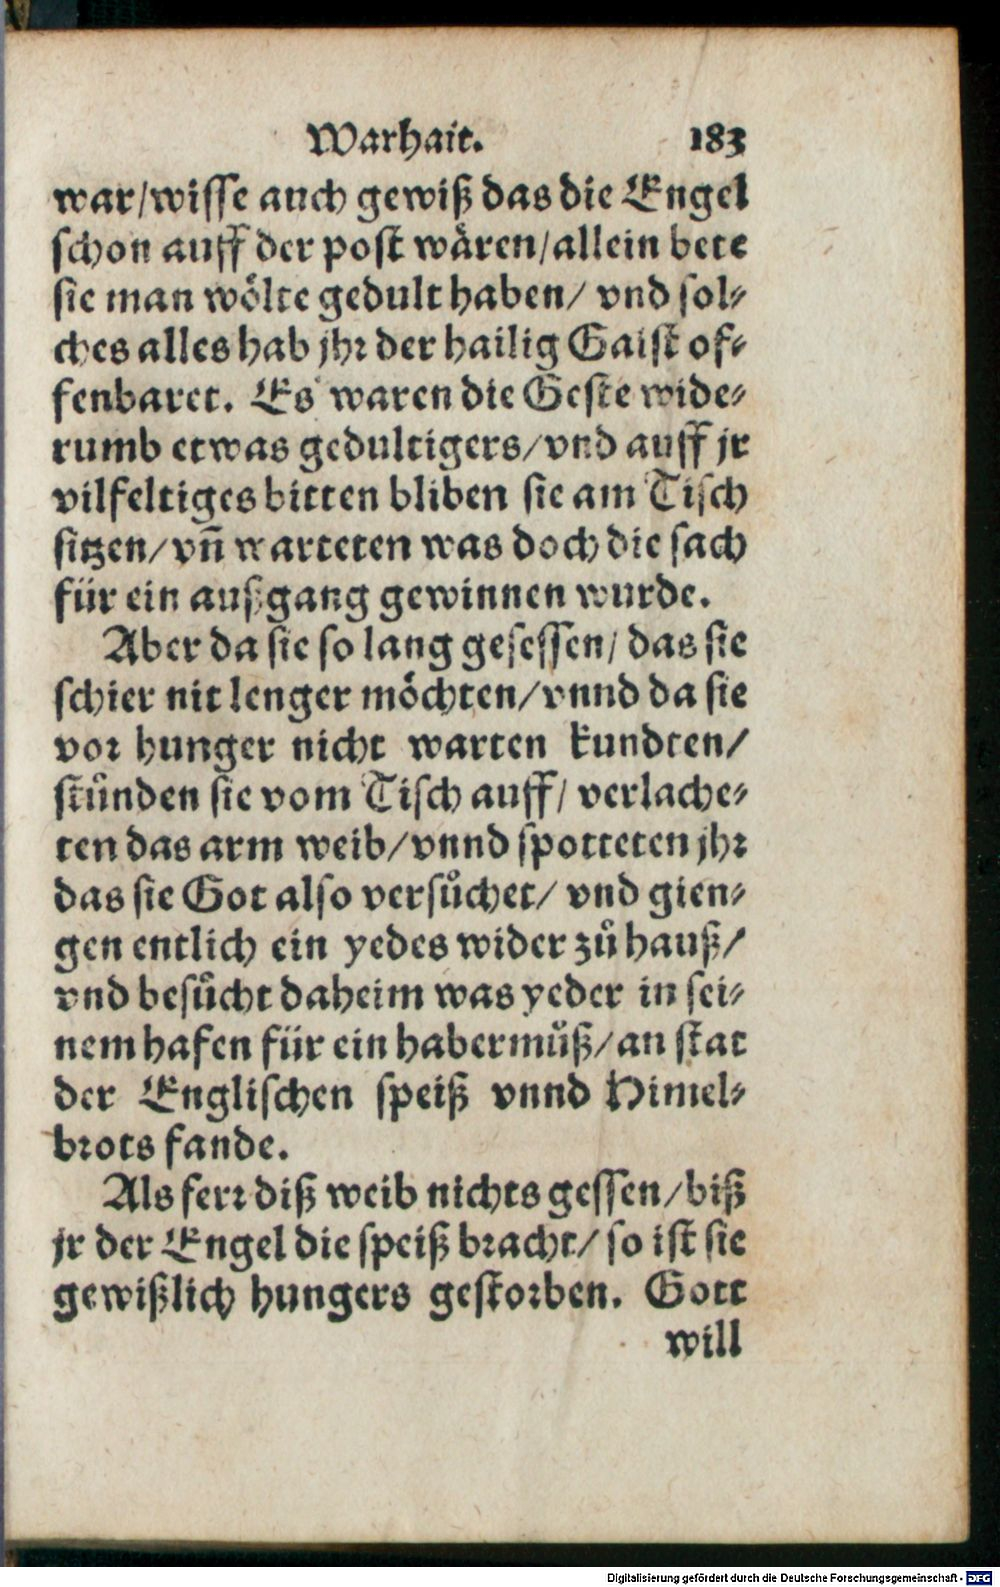 Warhait. 183
war/wisse auch gewiß das die Engel
schon auff der post wären/allein bete
sie man wölte gedult haben/ vnd sol⸗
ches alles hab jhr der hailig Gaist of⸗
fenbaret. Es waren die Geste wide⸗
rumb etwas gedultigers/vnd auff jr
vilfeltiges bitten bliben sie am Tisch
sitzen/vñ warteten was doch die sach
für ein außgang gewinnen wurde.
Aber da sie so lang gesessen/ das sie
schier nit lenger möchten/vnnd da sie
vor hunger nicht warten kundten/
stůnden sie vom Tisch auff/ verlache⸗
ten das arm weib/vnnd spotteten jhr
das sie Got also versůchet/ vnd gien⸗
gen entlich ein yedes wider zů hauß/
vnd besůcht daheim was yeder in sei⸗
nem hafen für ein habermůß/an stat
der Englischen speiß vnnd Himel⸗
brots fande.
Als ferr diß weib nichts gessen/biß
jr der Engel die speiß bracht/ so ist sie
gewißlich hungers gestorben. Gott
will
Digitalisierung gefördert durch die Deutsche Forschungsgemeinschaft - DFG